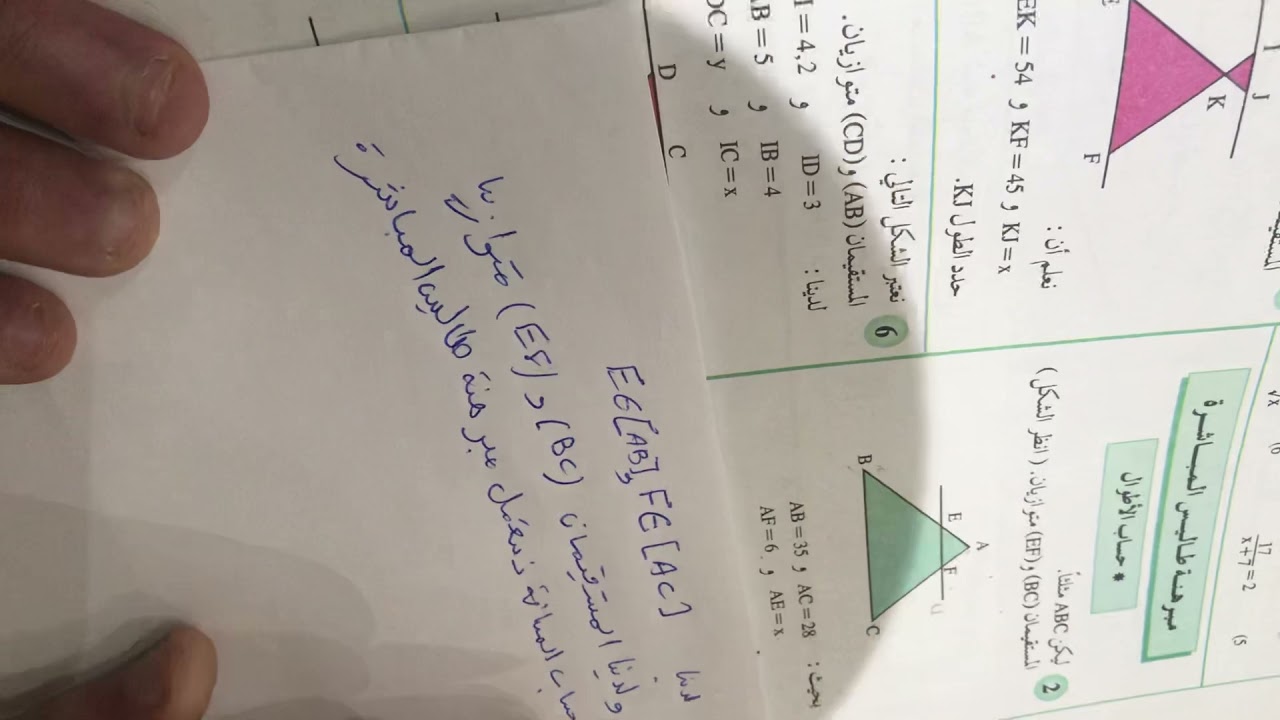 √x
(6
17/(x+7) = 2
(5
مبرهنة طاليس المباشرة
• حساب الأطوال
2 ليكن ABC مثلثاً.
المستقيمان (BC) و (EF) متوازيان. (انظر الشكل)
A
E
F
B
C
بحيث :
AB = 35 و AC = 28
AF = 6 و AE = x
J
K
E
F
نعلم أن :
EK = 54 و KF = 45 و KJ = x
حدد الطول KJ.
6 نعتبر الشكل التالي :
المستقيمان (AB) و (CD) متوازيان.
لدينا :
I = 4,2 و ID = 3
AB = 5 و IB = 4
DC = y و IC = x
D
C
لدينا
E∈[AB] و F∈[AC]
ولدينا المستقيمان (BC) و (EF) متوازيا
حساب المسافة نستعمل مبرهنة طاليس المباشرة